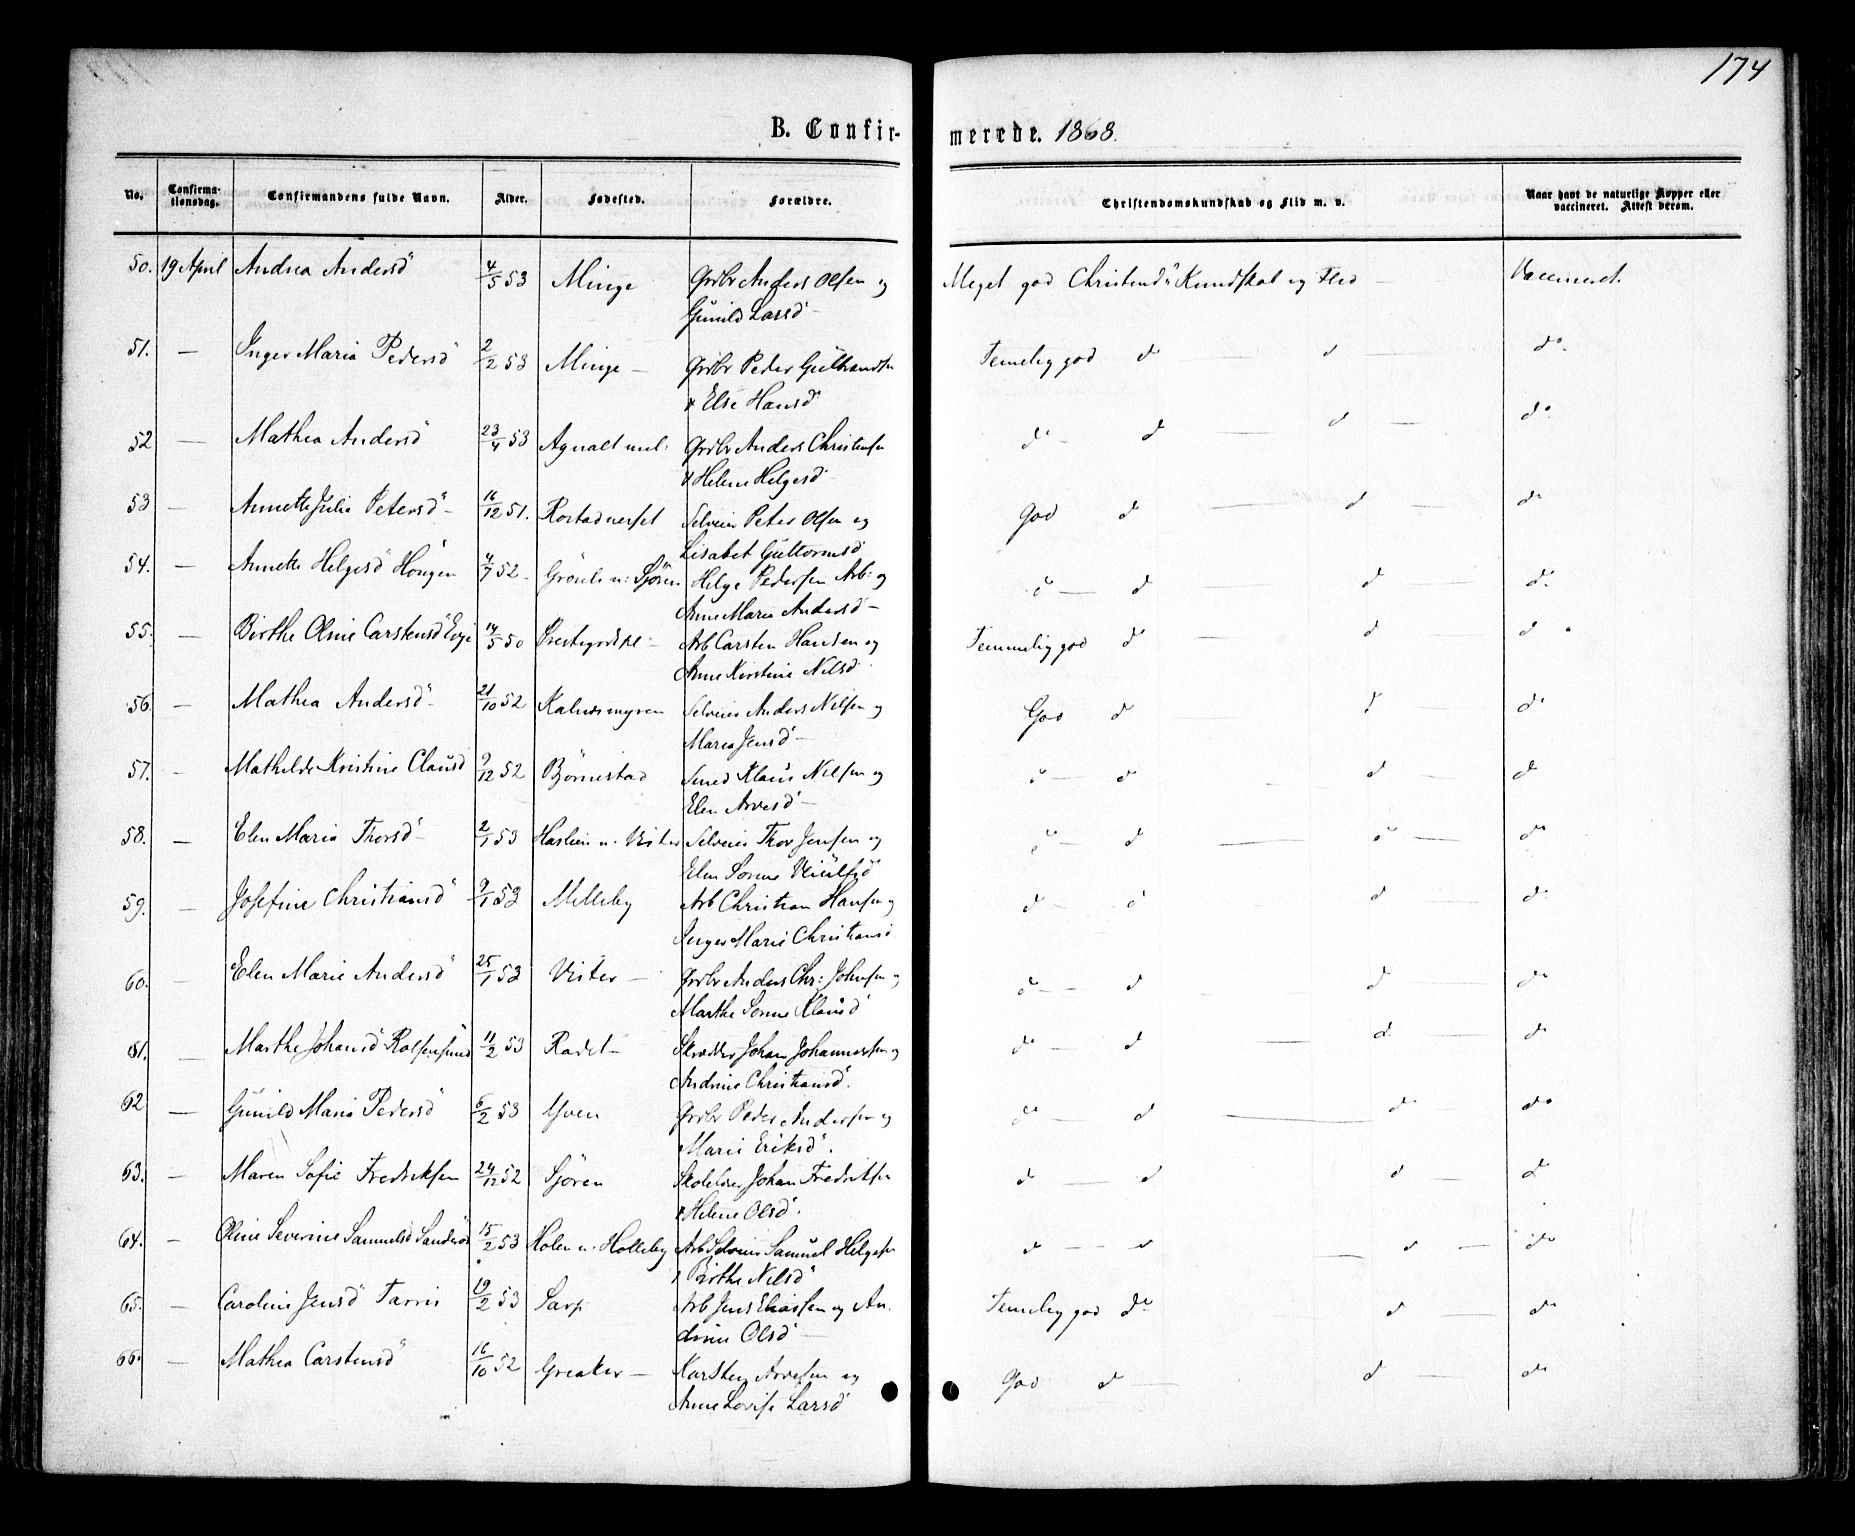 174
B. Confirmerede. 1868.
No. Confirmationsdag. Confirmandens fulde Navn. Alder. Fødested. Forældre. Christendomskundskab og Flid m. v. Naar havt de naturlige Kopper eller vaccineret. Attest derom.
50. 19 April Andrea Andersd 4/5 53 Minge Grdbr Anders Olsen og Meget god Christend: Kundskab og Flid Vaccineret.
Gunild Larsd
51. — Inger Maria Pedersd 2/2 53 Minge — Grdbr Peder Gulbrandsen Temelig god d — d — do.
& Else Hansd
52 — Mathea Andersd 23/4 53 Agnalt mel: Grdbr Anders Christensen do — d — d — do
& Helene Helgesd
53 — Annette Julie Petersd 16/12 51. Selveier Peter Olsen og God d — d — do
Lisabet Guttormsd
54. — Annette Helgesd Høugen 4/7 52. Grønli u: Sjøren Helge Pedersen Arb: og d — d — d — do.
Anne Maria Andersd —
55. — Birthe Oline Carstensd Evje 14/5 50 Arb Carsten Hansen og Temmelig god d — d d
Anne Kirstine Nilsd
56. — Mathea Andersd 21/10 52 Kalnesmyren Selveier Anders Nilsen og God d — d — do
Maria Jensd —
57. — Mathilde Kristine Clausd 9/12 52 Børnestad Smed Klaus Nilsen og d — d — d — d
Elen Arvesd —
58. — Elen Maria Thorsd 2/1 53 Haslien u. Vister Selveier Thor Jensen og d — d — d — do
Elen Sorine
59. — Josefine Christiansd 9/1 53 Melleby Arb Christian Hansen og d — d d d.
Inger Marie Christiansd
60. — Elen Marie Andersd 25/1 53 Vister — Grdbr Anders Chr: Johnsen og d — d — d — do
Marthe Sorine Klausd
61. — Marthe Johansd Rolfsøsund 11/2 53 Radet — Skrædder Johan Johannesen og do — d — d. — do
Andrine Christiansd.
62 — Gunild Maria Pedersd 6/2 53 Yven Grdbr Peder Andersen og do — d — do do
Marie Eriksd.
63. — Maren Sofie Fredriksen 24/12 52 Sjøren Skolelærer Johan Fredriksen d — d — d — d
& Helene Olsd.
64. — Oline Severine Samuelsd Sanderød 15/2 53 Holen u. Holleby Arb Selveier Samuel Helgesen d — d — d — do
& Birthe Nilsd
65. — Caroline Jensd Tarris 19/2 53 Sarp Arb Jens Eliassen og An- Temelig god do d — do
drine Olsd —
66. — Mathea Carstensd 16/10 52 Greaker — Karsten Arvesen og God d — d — do
Anne Lovise Larsd